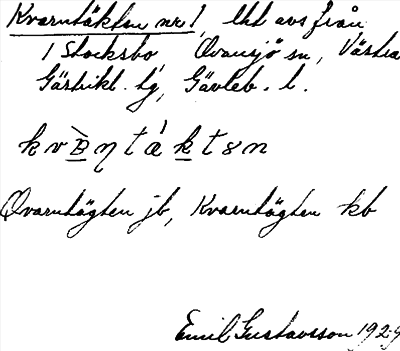 Kvarntäkten nr 1, lht avs från
1 Stocksbo, Ovansjö sn, Västra
Gästrikl. tg, Gävleb. l.
Qvarntägten jb, Kvarntägten kb
Emil Gustavsson 192